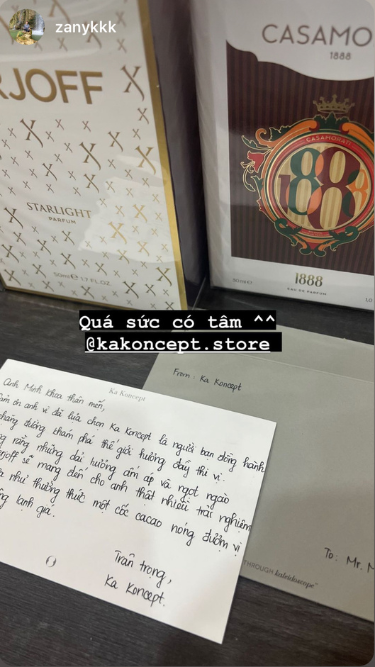 zanykkk
RJOFF
STARLIGHT
PARFUM
50ml e 1.7 FL.OZ
CASAMO
1888
CASAMORATI
1888
1888
EAU DE PARFUM
Quá sức có tâm ^^
@kakoncept.store
Ka Koncept
Anh Minh Khoa thân mến,
ảm ơn anh vì đã lựa chọn Ka Koncept là người bạn đồng hành
chặng đường khám phá thế giới hương đầy thú vị.
ng rằng những dải hương ấm áp và ngọt ngào
rjoff sẽ mang đến cho anh thật nhiều trải nghiệm
à như thưởng thức một cốc cacao nóng đượm vị
ng lạnh giá.
Trân trọng,
Ka Koncept.
From : Ka Koncept
To : Mr. M
THROUGH kaleidoscope"